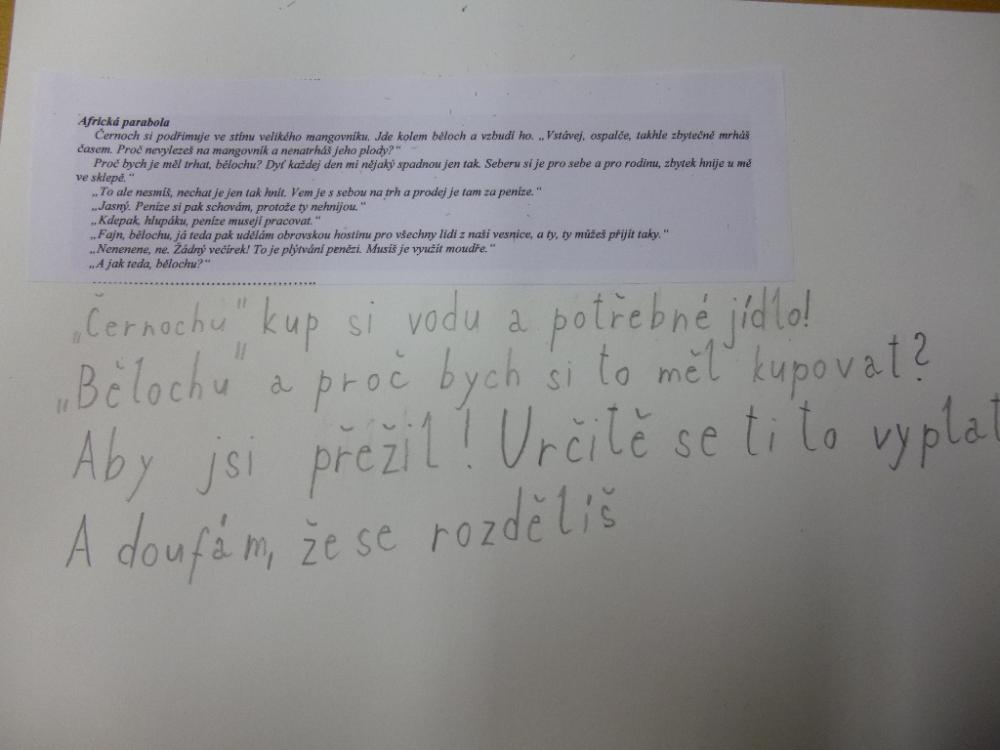 Africká parabola
Černoch si podřimuje ve stínu velikého mangovníku. Jde kolem běloch a vzbudí ho. „Vstávej, ospalče, takhle zbytečně mrháš
časem. Proč nevylezeš na mangovník a nenatrháš jeho plody?“
Proč bych je měl trhat, bělochu? Dyť každej den mi nějaký spadnou jen tak. Seberu si je pro sebe a pro rodinu, zbytek hnije u mě
ve sklepě.“
„To ale nesmíš, nechat je jen tak hnít. Vem je s sebou na trh a prodej je tam za peníze.“
„Jasný. Peníze si pak schovám, protože ty nehnijou.“
„Kdepak, hlupáku, peníze musejí pracovat.“
„Fajn, bělochu, já teda pak udělám obrovskou hostinu pro všechny lidi z naší vesnice, a ty, ty můžeš přijít taky.“
„Nenenene, ne. Žádný večírek! To je plýtvání penězi. Musíš je využít moudře.“
„A jak teda, bělochu?“
„Černochu" kup si vodu a potřebné jídlo!
„Bělochu" a proč bych si to měl kupovat?
Aby jsi přěžil! Určitě se ti to vyplat
A doufám, že se rozdělíš